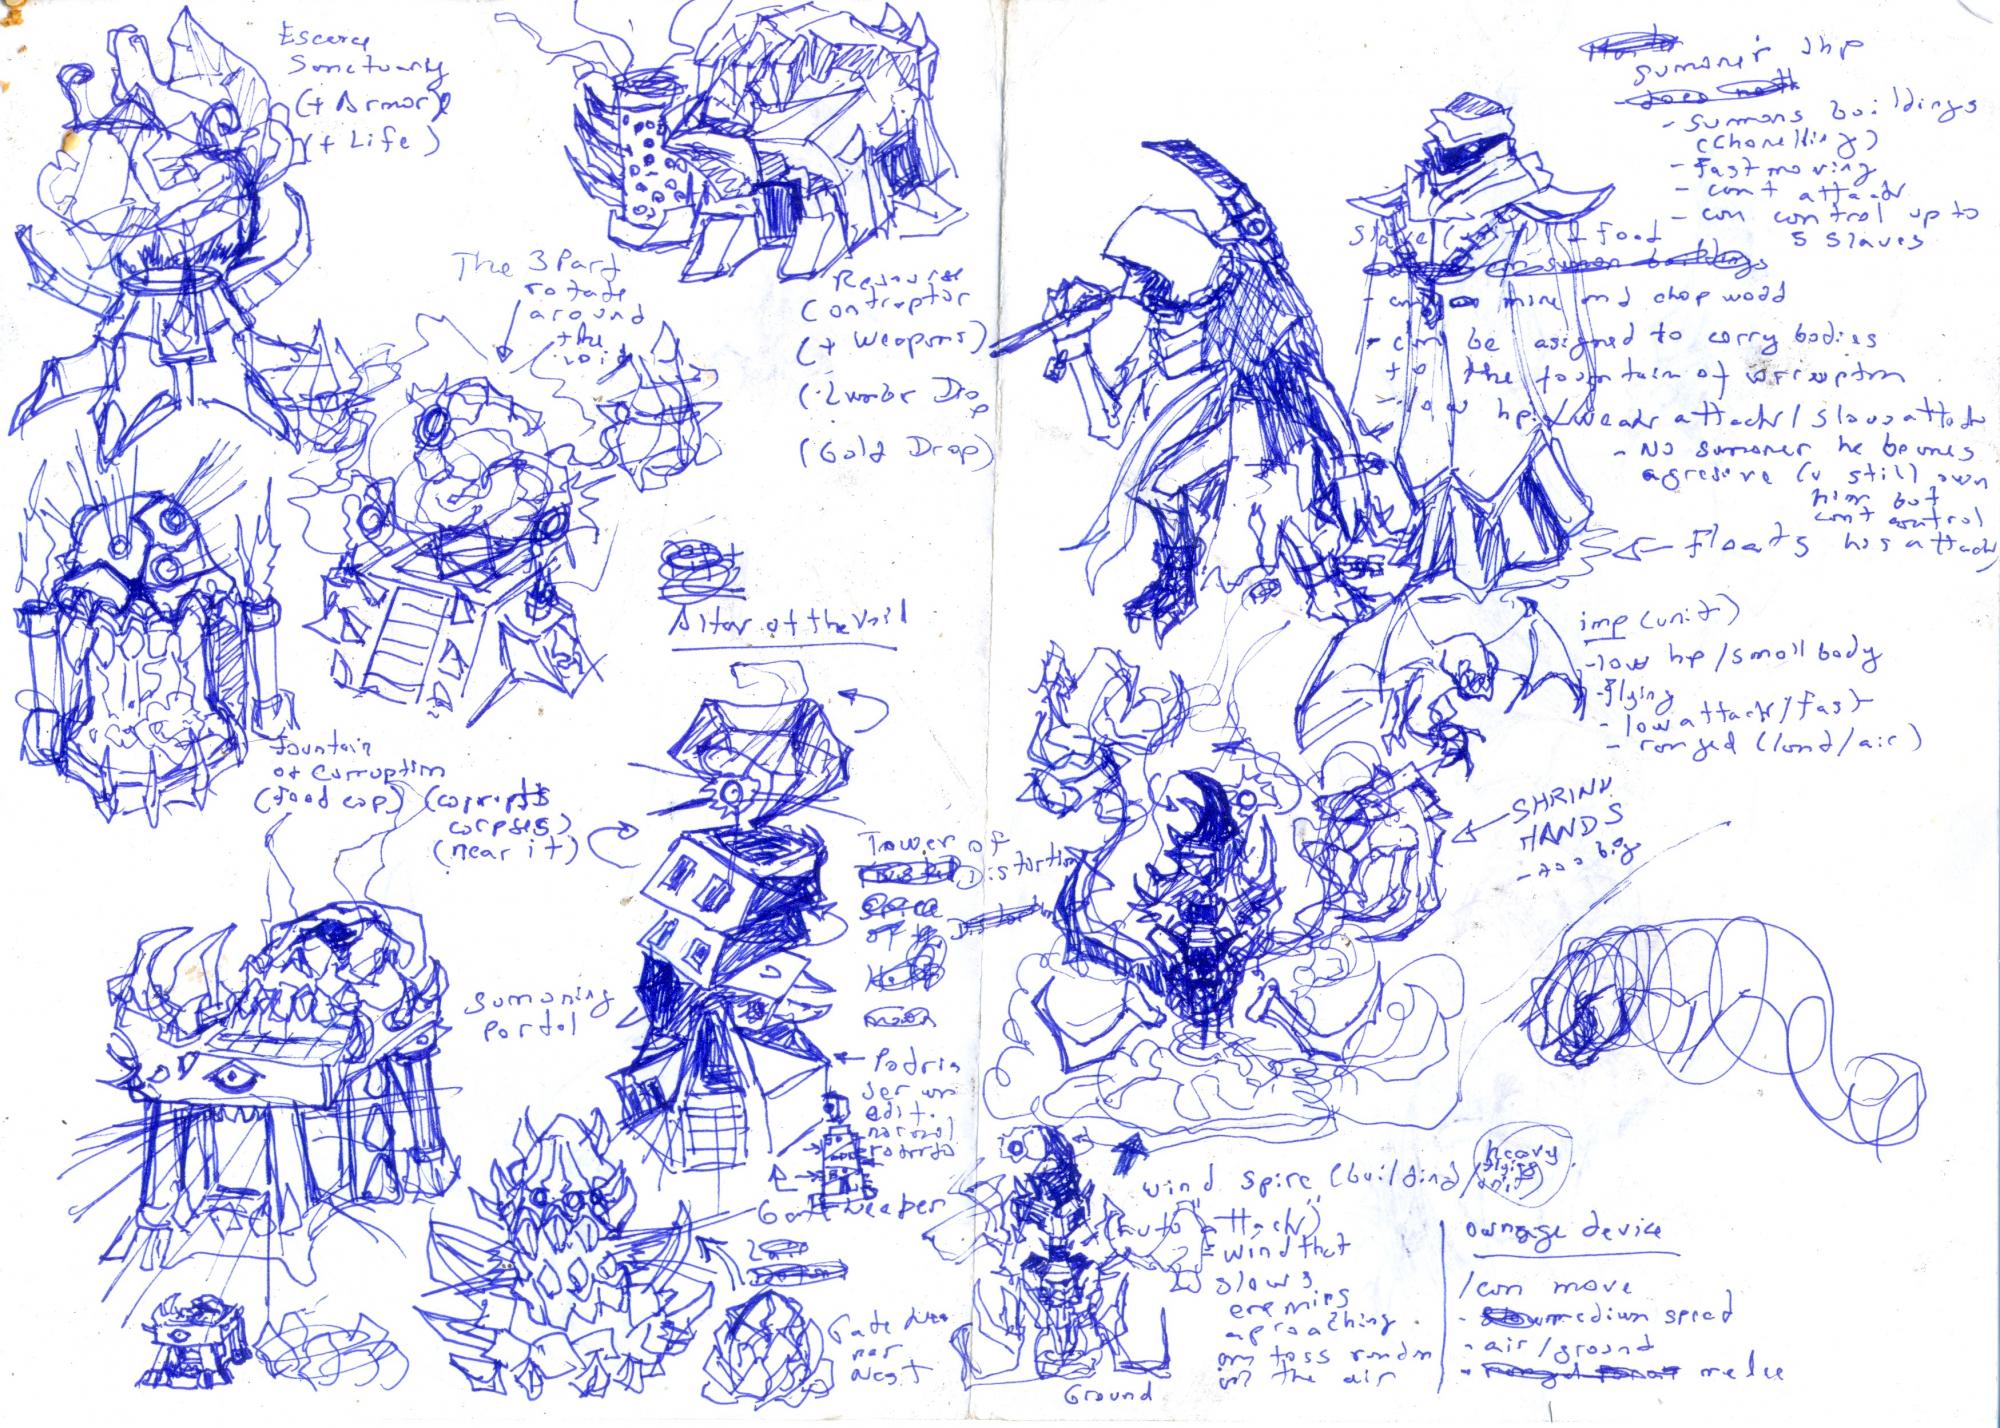 Sanctuary
(+ Armor)
(+ Life)
The 3 Part
rotate
around
the
void
(+ Weapons)
(Lumber Drop
(Gold Drop)
Altar of the void
fountain
of Corruption
(food cap) (corrupts
corpses)
(near it)
Tower of
Distortion
Sumoning
portal
Gate keeper
Nest
sumoner 2hp
- summons buildings
(chanelling)
- fast moving
- cant attack
- can control up to
5 slaves
slave (unit) 1 food
- can mine and chop wood
- can be asigned to carry bodies
to the fountain of corruption
- low hp / weak attack / slow attack
- No sumoner he becomes
agresive (u still own
him but
cant control
Floats his attack
imp (unit)
- low hp / small body
- flying
- low attack / fast
- ranged (land / air)
SHRINK
HANDS
- too big
wind spire (building / heavy
flying
unit)
(auto "attack")
= wind that
slows
enemies
aproaching
on toss random
in the air
Ground
ownage device
/can move
- medium speed
- air / ground
- melee